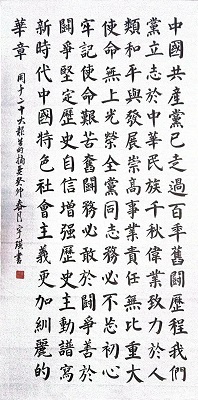 中國共產黨已走過百年舊鬪歷程我們
黨立志於中華民族千秋偉業致力於人
類和平與發展崇高事業責任無比重大
使命無上光榮全黨同志務必不忘初心
牢記使命艱苦奮鬪務必敢於鬪爭善於
鬪爭堅定歷史自信增强歷史主動譜寫
新時代中國特色社會主義更加絢麗的
華章